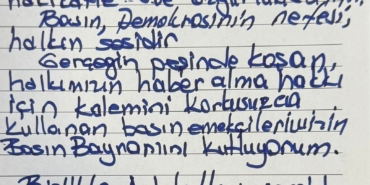 Basın, Demokrasinin nefesi,
halkın sesidir
Gerçeğin peşinde koşan,
halkımızın haber alma hakkı
için kalemini korkusuzca
kullanan basın emekçilerimizin
Basın Bayramını kutluyorum.